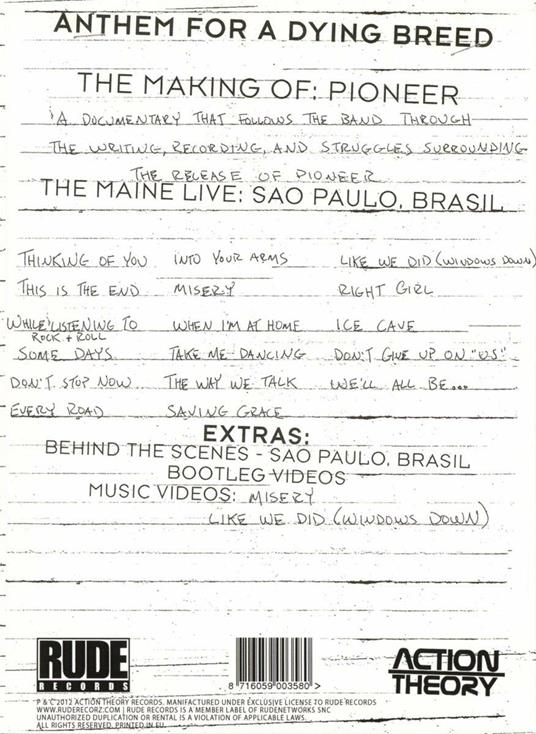 ANTHEM FOR A DYING BREED
THE MAKING OF: PIONEER
'A DOCUMENTARY THAT FOLLOWS THE BAND THROUGH
THE WRITING, RECORDING, AND STRUGGLES SURROUNDING
THE RELEASE OF PIONEER
THE MAINE LIVE: SAO PAULO, BRASIL
THINKING OF YOU INTO YOUR ARMS LIKE WE DID (WINDOWS DOWN)
THIS IS THE END MISERY RIGHT GIRL
WHILE LISTENING TO WHEN I'M AT HOME ICE CAVE
ROCK + ROLL
SOME DAYS TAKE ME DANCING DON'T GIVE UP ON "US"
DON'T STOP NOW THE WAY WE TALK WE'LL ALL BE...
EVERY ROAD SAVING GRACE
EXTRAS:
BEHIND THE SCENES - SAO PAULO, BRASIL
BOOTLEG VIDEOS
MUSIC VIDEOS: MISERY
LIKE WE DID (WINDOWS DOWN)
RUDE
RECORDS
8 716059 003580 >
ACTION
THEORY
P & C 2012 ACTION THEORY RECORDS. MANUFACTURED UNDER EXCLUSIVE LICENSE TO RUDE RECORDS
WWW.RUDERECORZ.COM | RUDE RECORDS IS A MEMBER LABEL OF RUDENETWORKS SNC
UNAUTHORIZED DUPLICATION OR RENTAL IS A VIOLATION OF APPLICABLE LAWS.
ALL RIGHTS RESERVED. PRINTED IN EU.